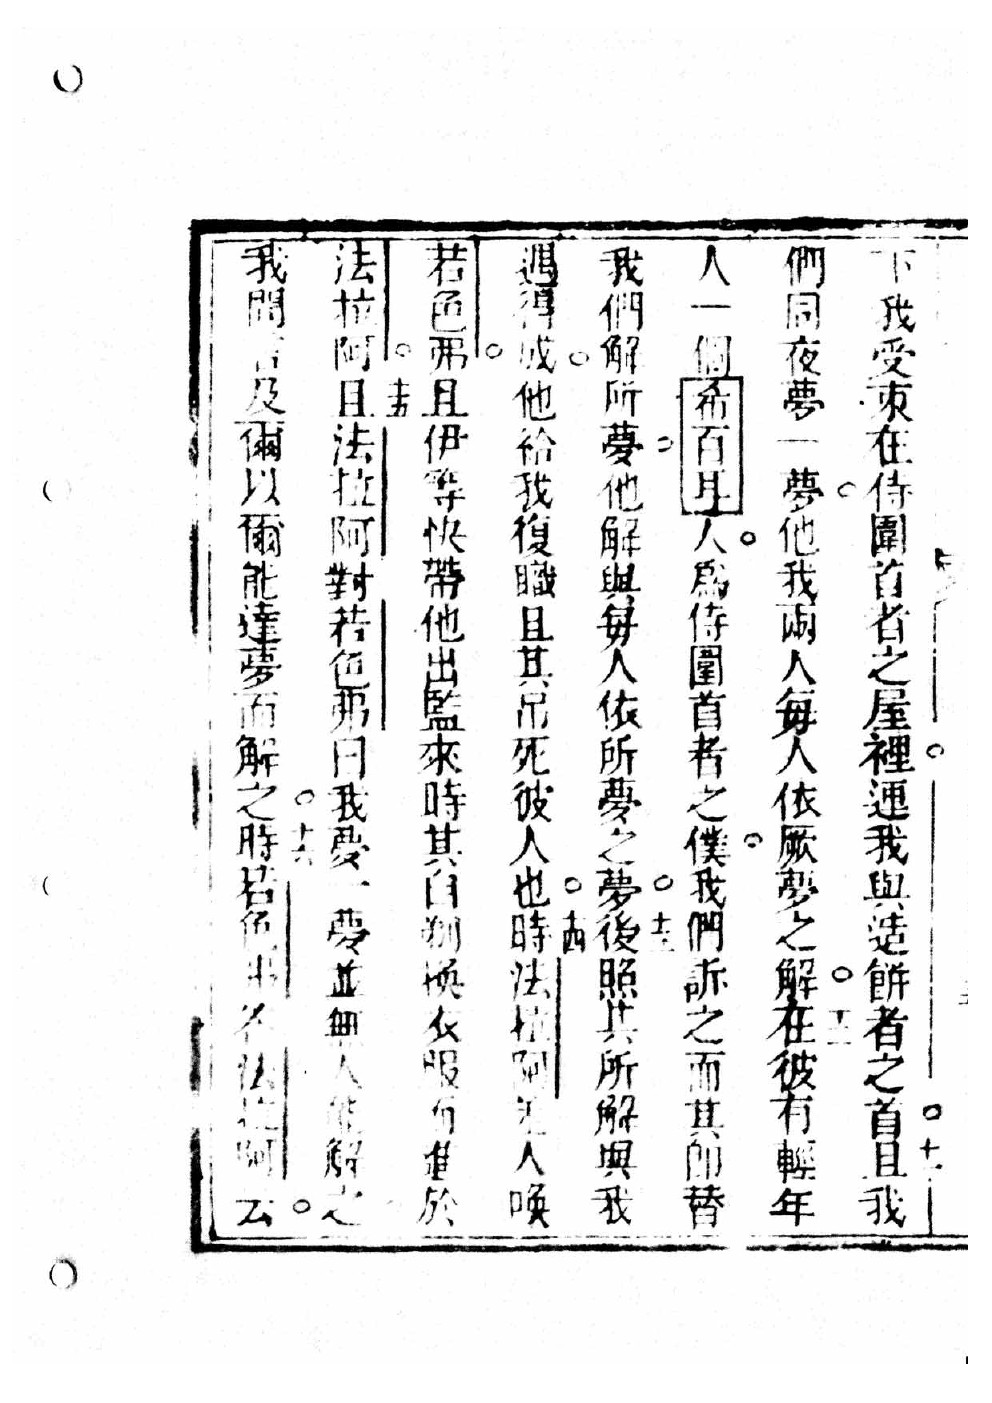 下我受束在侍圍首者之屋裡連我與造餅者之首十一且我
們同夜夢一夢他我兩人每人依厥夢之解十二在彼有輕年
人一個希百耳人為侍圍首者之僕我們訴之而其即替
我們解所夢他解與每人依所夢之夢後十三照其所解與我
遇得成他給我復職且其吊死彼人也十四時法拉阿差人喚
若色弗且伊等快帶他出監來時其自剃換衣服而進於
法拉阿十五且法拉阿對若色弗曰我夢一夢並無人能解之
我聞言及爾以爾能達夢而解之十六時若色弗答法拉阿云